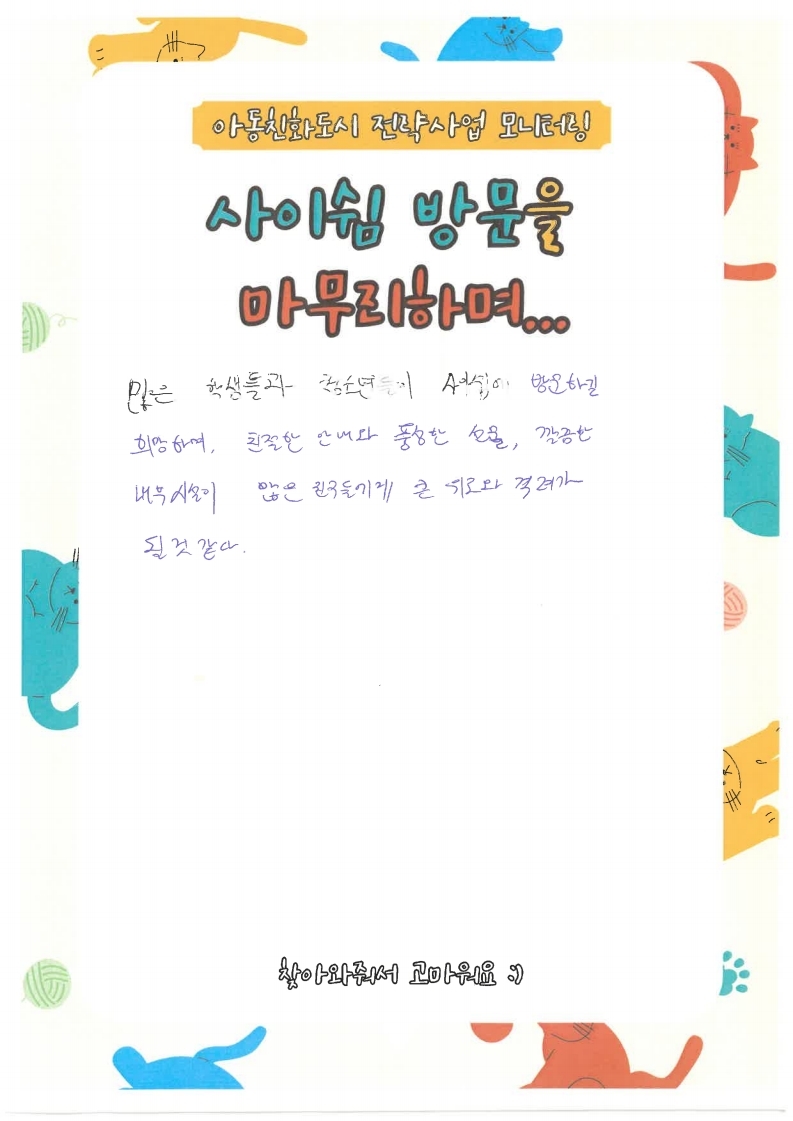 아동친화도시 전략사업 모니터링
사이쉼 방문을
마무리하며...
많은 학생들과 청소년들이 방문하길
희망하며, 친절한 안내와 풍성한 선물, 깔끔한
내부시설이 많은 친구들에게 큰 위로와 격려가
될 것 같다.
찾아와줘서 고마워요 :)